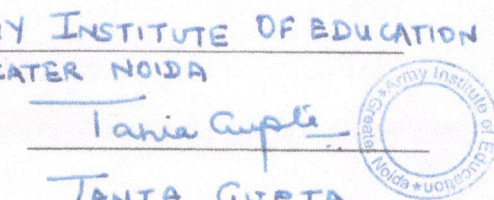 Y INSTITUTE OF EDUCATION
EATER NOIDA
Tania Gupta
TANIA GUPTA
Army Institute of Education
★Greater Noida★